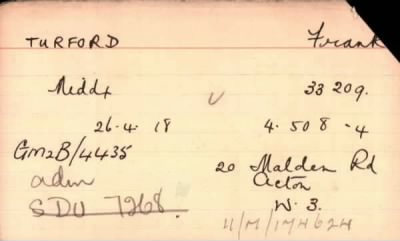 TURFORD Frank
Middx 33209.
26.4.18 4.508-4
GM2B/4435 20 Malden Rd
adm Acton
SDU 7268. W.3.
11/M/174624